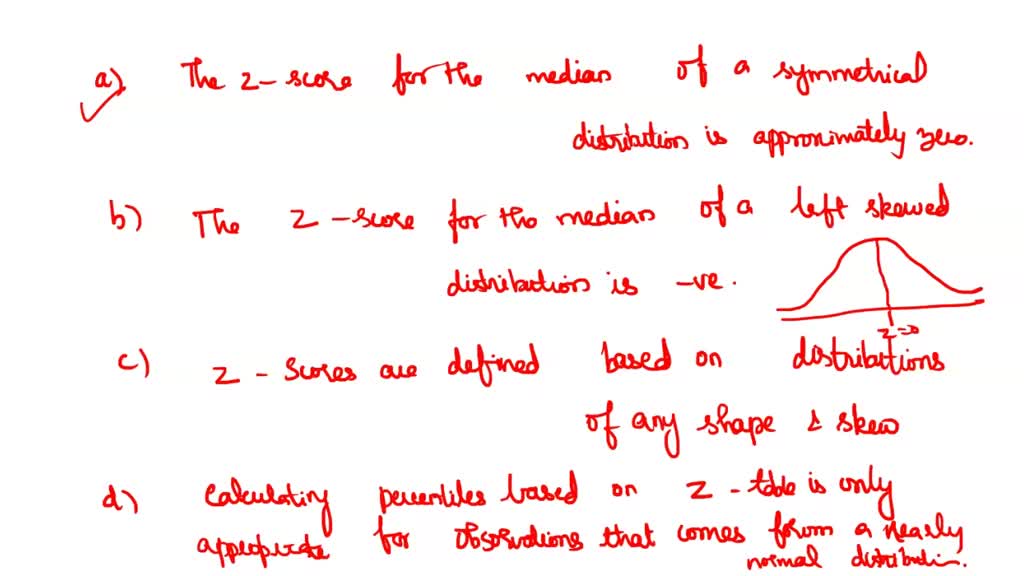 a) The z-score for the median of a symmetrical
distribution is approximately zero.
b) The z-score for the median of a left skewed
distribution is -ve.
z=0
c) z-scores are defined based on distributions
of any shape & skew
d) Calculating percentiles based on z-table is only
appropriate for observations that comes form a nearly
normal distribution.